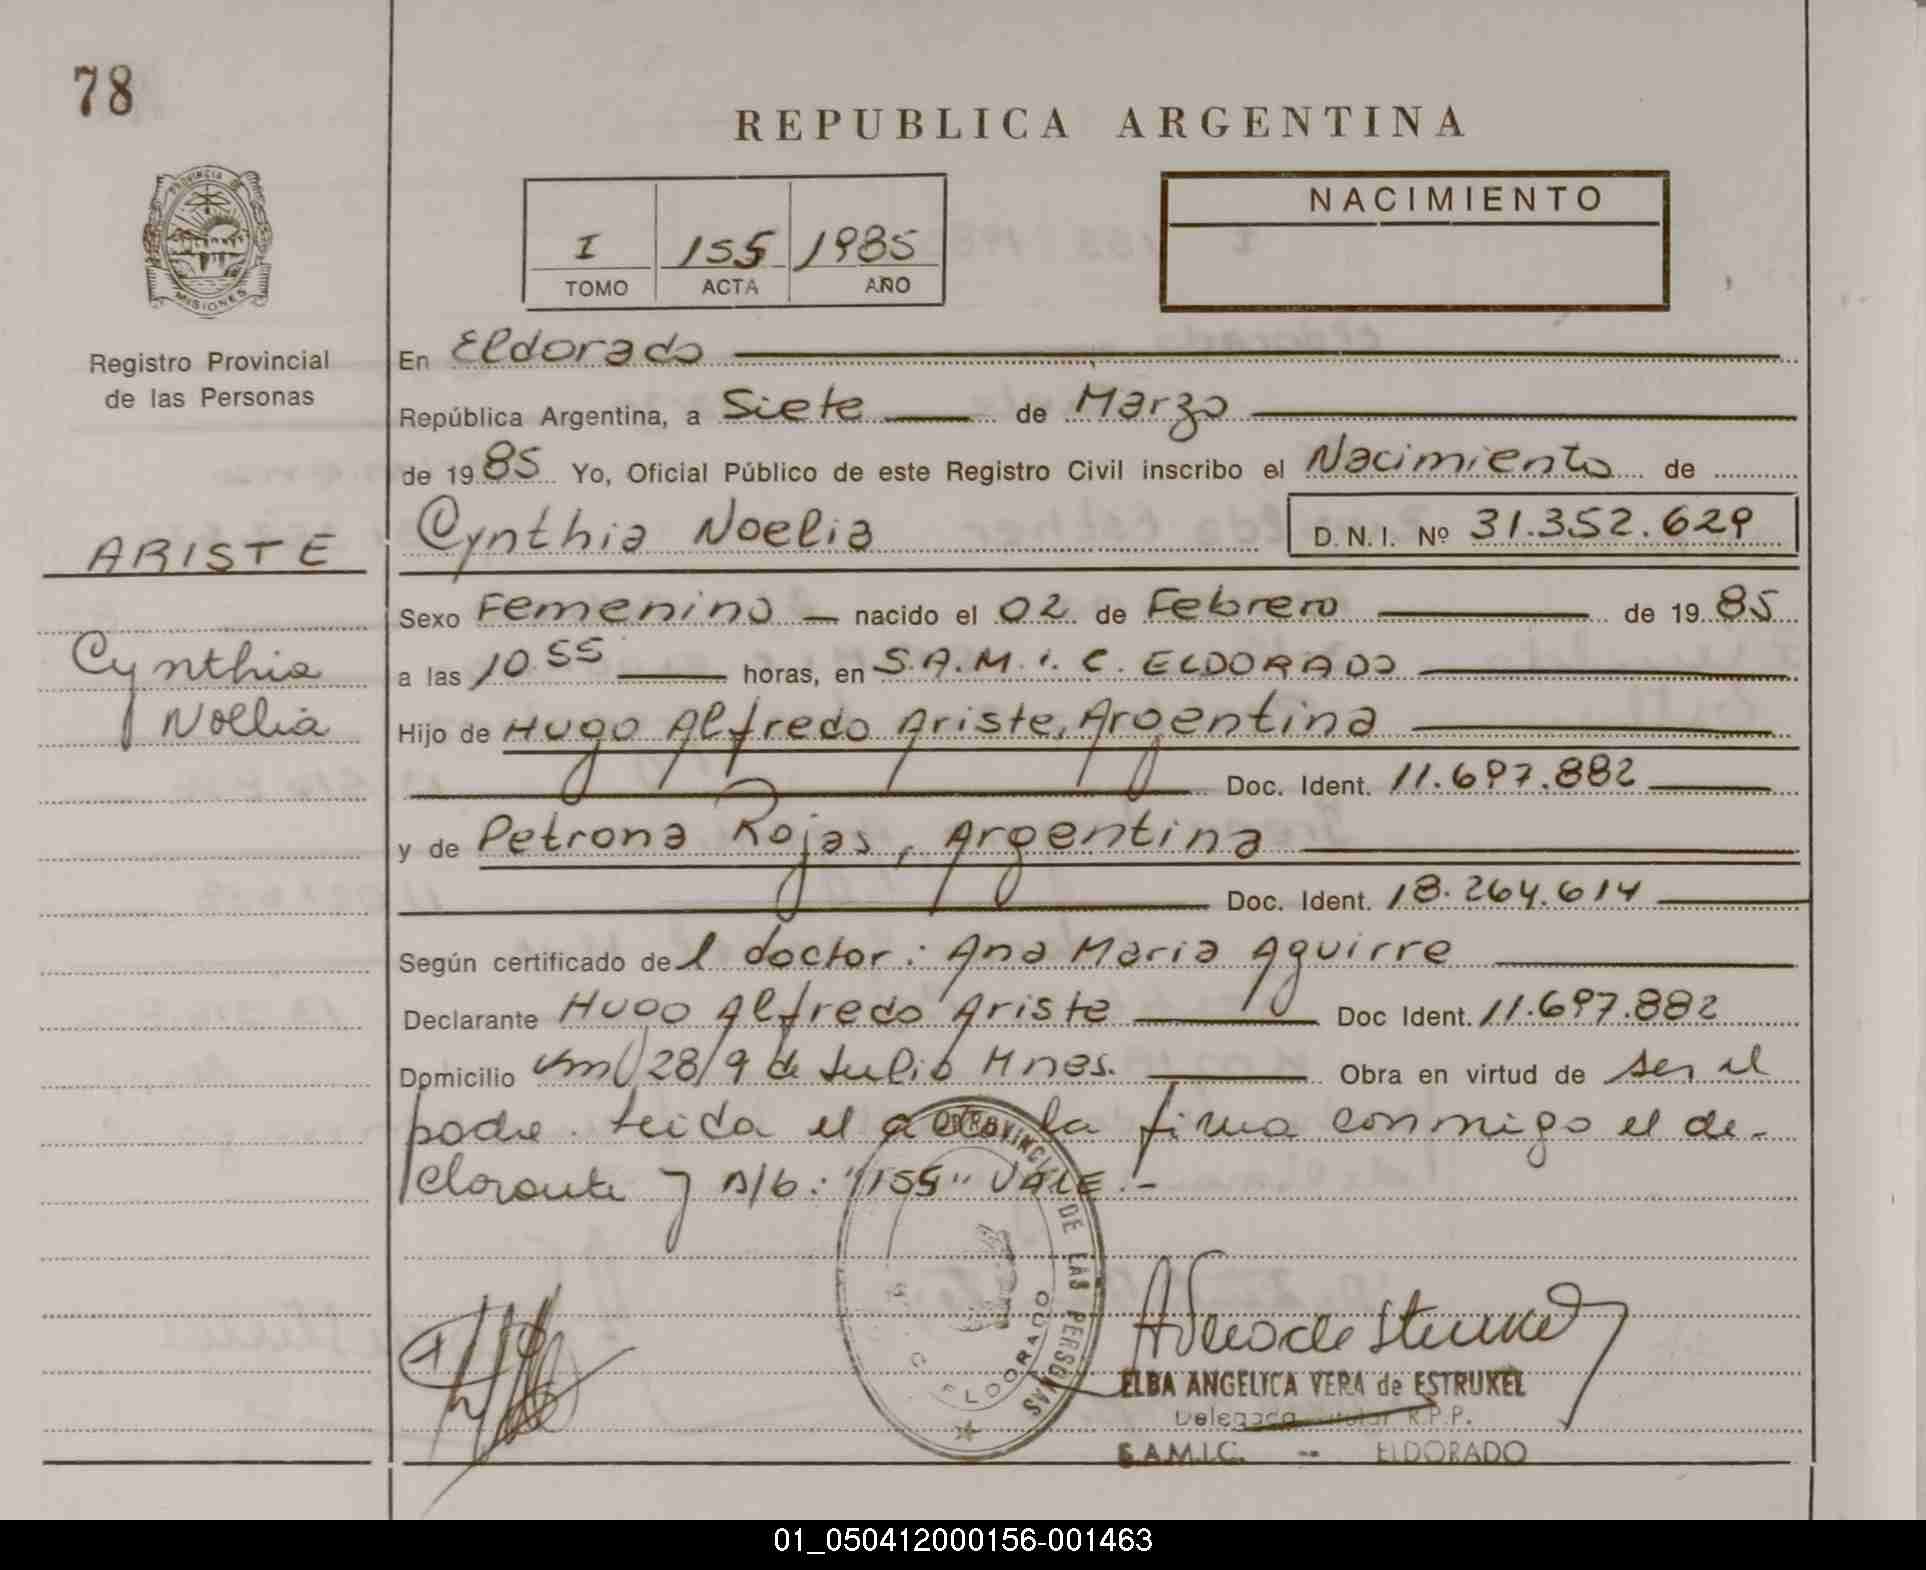 78
REPUBLICA ARGENTINA
PROVINCIA DE
MISIONES
Registro Provincial
de las Personas
I 155 1985
TOMO ACTA AÑO
NACIMIENTO
En Eldorado
República Argentina, a Siete de Marzo
de 1985 Yo, Oficial Público de este Registro Civil inscribo el Nacimiento de
ARISTE
Cynthia Noelia D.N.I. Nº 31.352.629
Cynthia
Noelia
Sexo Femenino nacido el 02 de Febrero de 1985
a las 10.55 horas, en S.A.M.I.C. ELDORADO
Hijo de Hugo Alfredo Ariste, Argentina
Doc. Ident. 11.697.882
y de Petrona Rojas, Argentina
Doc. Ident. 18.264.614
Según certificado del doctor: Ana Maria Aguirre
Declarante Hugo Alfredo Ariste Doc Ident. 11.697.882
Domicilio Km 28/9 de Julio Mnes. Obra en virtud de ser el
padre. Leida el acta la firma conmigo el de-
clarante y s/b: "155" VALE.-
PROVINCIAL DE LAS PERSONAS
ELDORADO
ELBA ANGELICA VERA de ESTRUKEL
Delegada Titular R.P.P.
S.A.M.I.C. -- ELDORADO
01_050412000156-001463